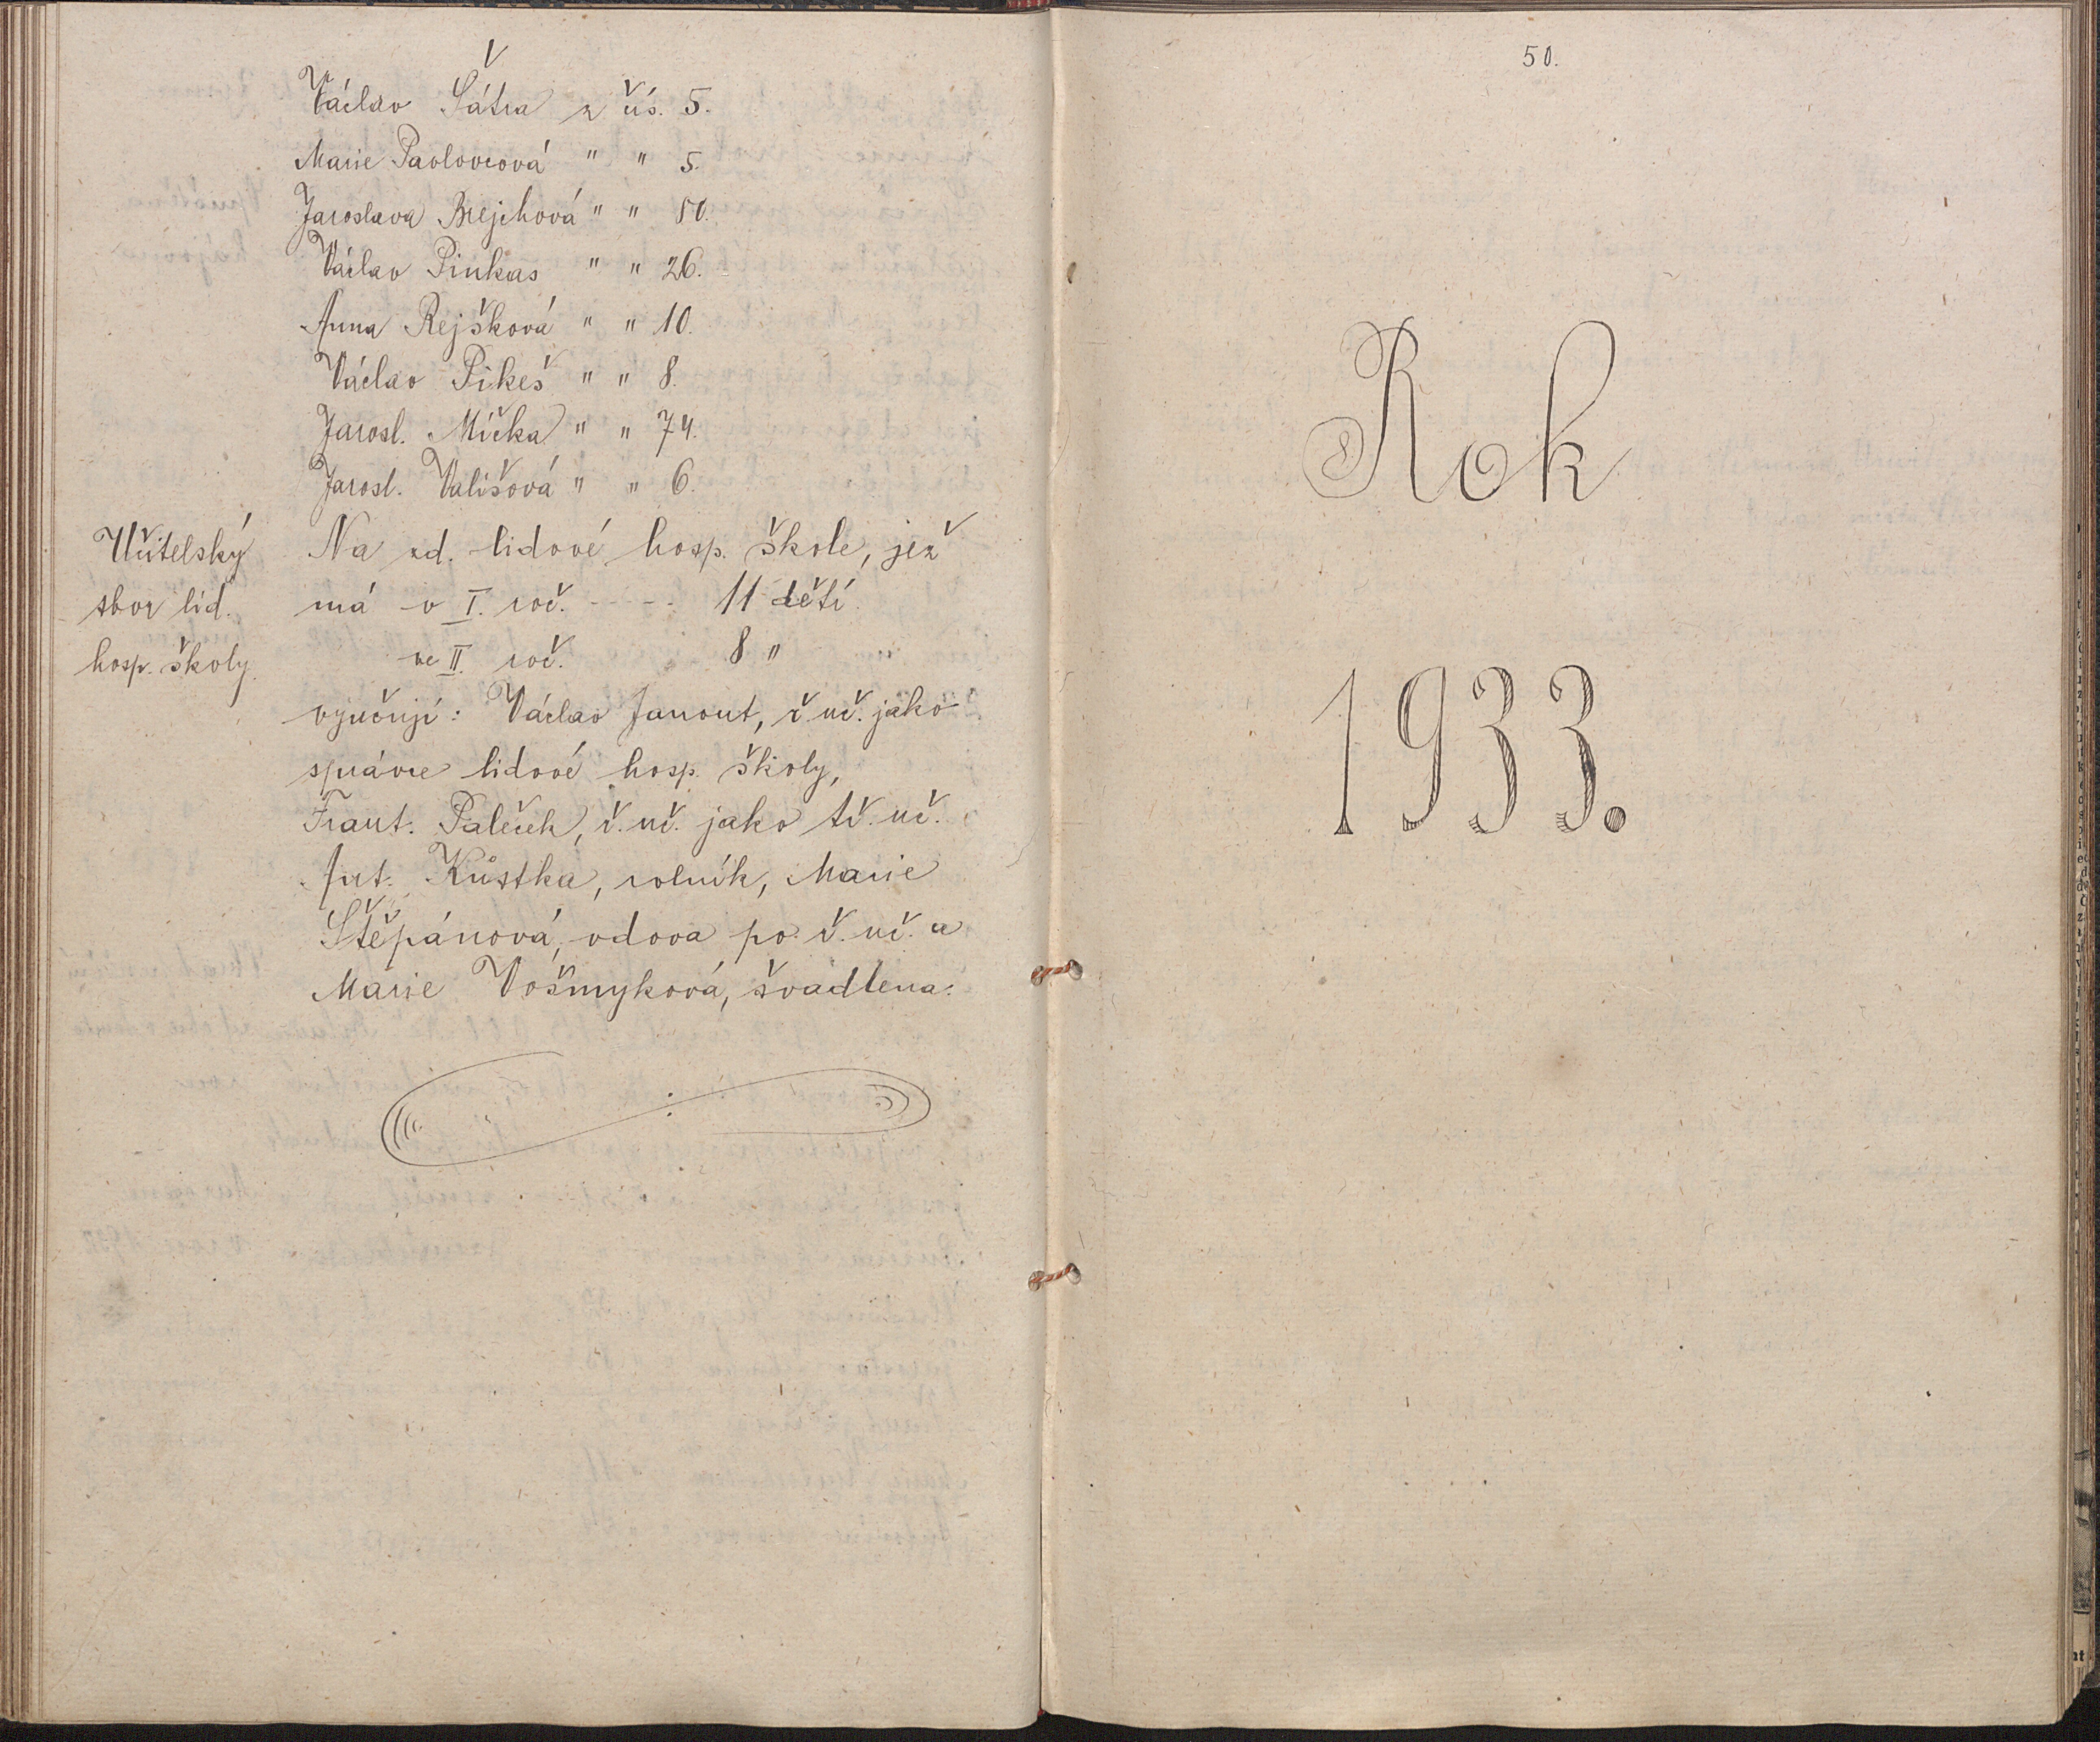 Václav Šátra z čís. 5.
Marie Pavlovcová " " 5.
Jaroslava Brejchová " " 50.
Václav Pinkas " " 26.
Anna Rejšková " " 10.
Václav Pikeš " " 8.
Jarosl. Mička " " 74.
Jarosl. Vališová " " 6.
Učitelský
sbor lid.
hosp. školy.
Na zd. lidové hosp. škole, jež
má v I. roč. - - - - 11 dětí
ve II. roč. 8 "
vyučují: Václav Janout, ř. uč. jako
správce lidové hosp. školy,
Frant. Paleček, ř. uč. jako tř. uč.
Ant. Kůstka, rolník, Marie
Štěpánová, vdova po ř. uč. a
Marie Vošmyková, švadlena.
50.
Rok
1933.